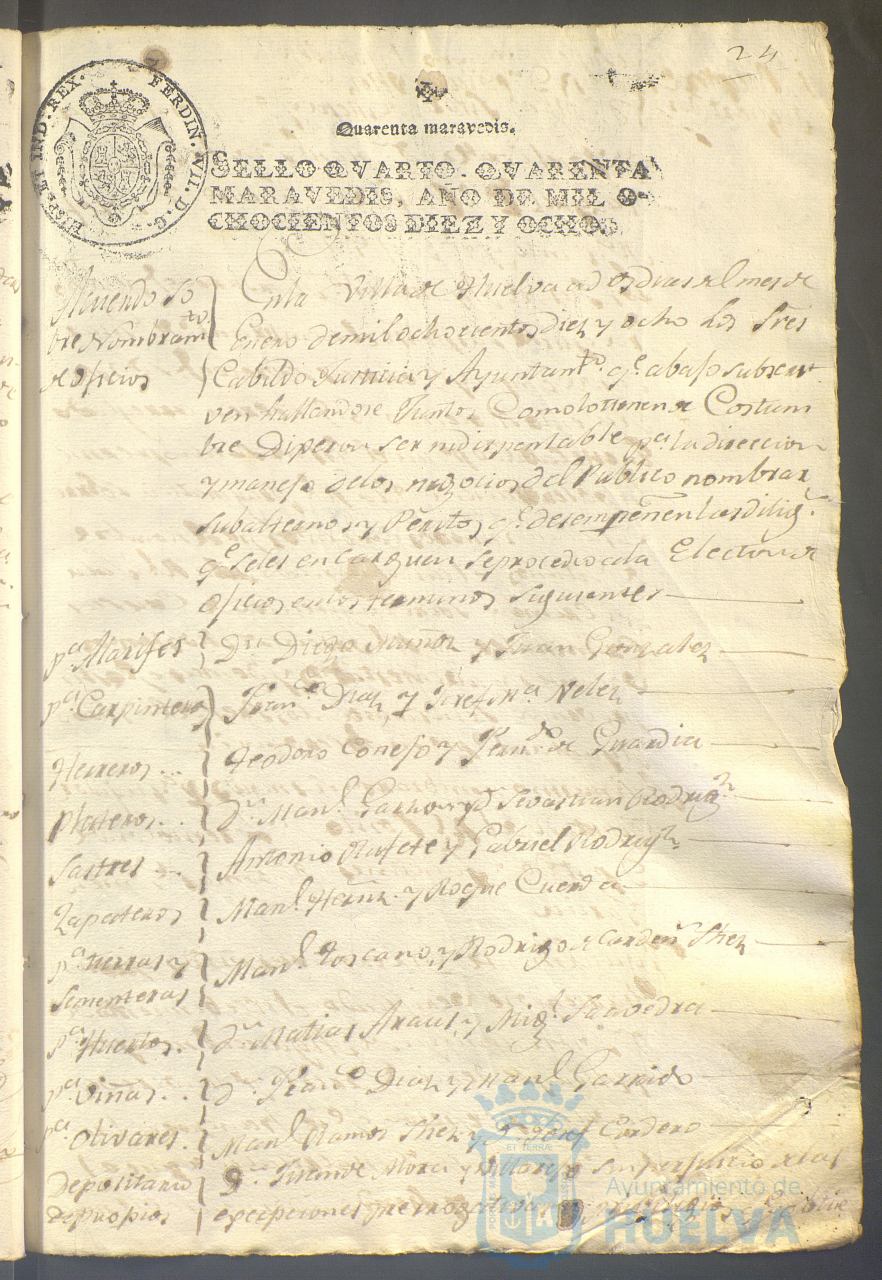 24
HISP. ET IND. REX. FERDIN. VII. D. G.
Quarenta maravedis.
SELLO QVARTO. QVARENTA
MARAVEDIS, AÑO DE MIL O-
CHOCIENTOS DIEZ Y OCHO
so
bre Nombram.to
de oficios
Enla Villa de Huelva a dos dias del mes de
Enero demil ochocientos diez y ocho los Sres
Cabildo Justicia y Ayuntam.to q.e abajo subscri
ven hallandose Juntos Comolotienen de Costum
bre Dijeron ser indispensable p.a la direccion
y manejo delos negocios del Publico nombrar
subalternos y Peritos q.e desempeñen las dilig.s
q.e seles encarguen seprocedio ala Eleccion de
oficios enlos terminos siguientes
p.a Alarifes Dn Diego Muñoz y Juan Gonzalez
p.a Carpinteros Fran.co Diaz y Josef M.a Velez
Herreros Teodoro Conejo y Fern.do de Guardia
Plateros d.n Man.l y d.n Sevastian Rodrig.z
Sastres Antonio Rufete y Gabriel Rodrig.z
Zapateros Man.l Hern.z y Roque Cuerda
p.a tierras y
Sementeras Man.l Toscano, y Rodrigo de Carden.s Shez
p.a Huertos d.n Matias Araus, y Mig.l Saavedra
p.a Viñas d.n Diaz y Man.l Garrido
p.a Olivares Man.l Ramos Shez y d.n Josef Cordero
Depositario
depropios d.n de Mora y Villarejo sin perjuicio delas
excepciones y prerrogativas
Ayuntamiento de
HUELVA